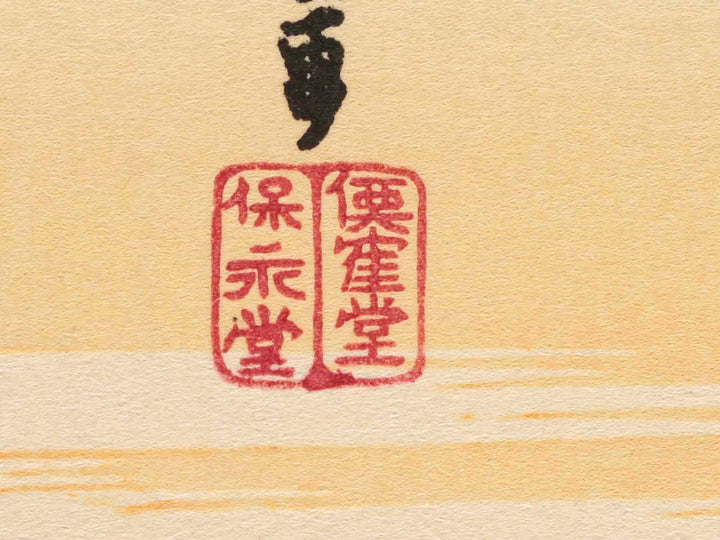 僊寉堂
保永堂